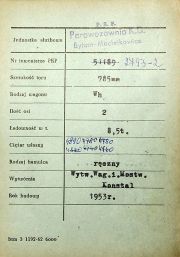 P.Z.P.
Jednostka służbowa
Parowozownia K.D.
Bytom-Maciejkowice
Nr inwentarza PKP 51189 2793-2
Szerokość toru 785mm
Rodzaj wagonu Wh
Ilość osi 2
Ładowność w t. 8,5t.
Ciężar własny
Rodzaj hamulca ręczny
Wytwórnia Wytw.Wag.i.Mostw.
Konstal
Rok budowy 1953r.